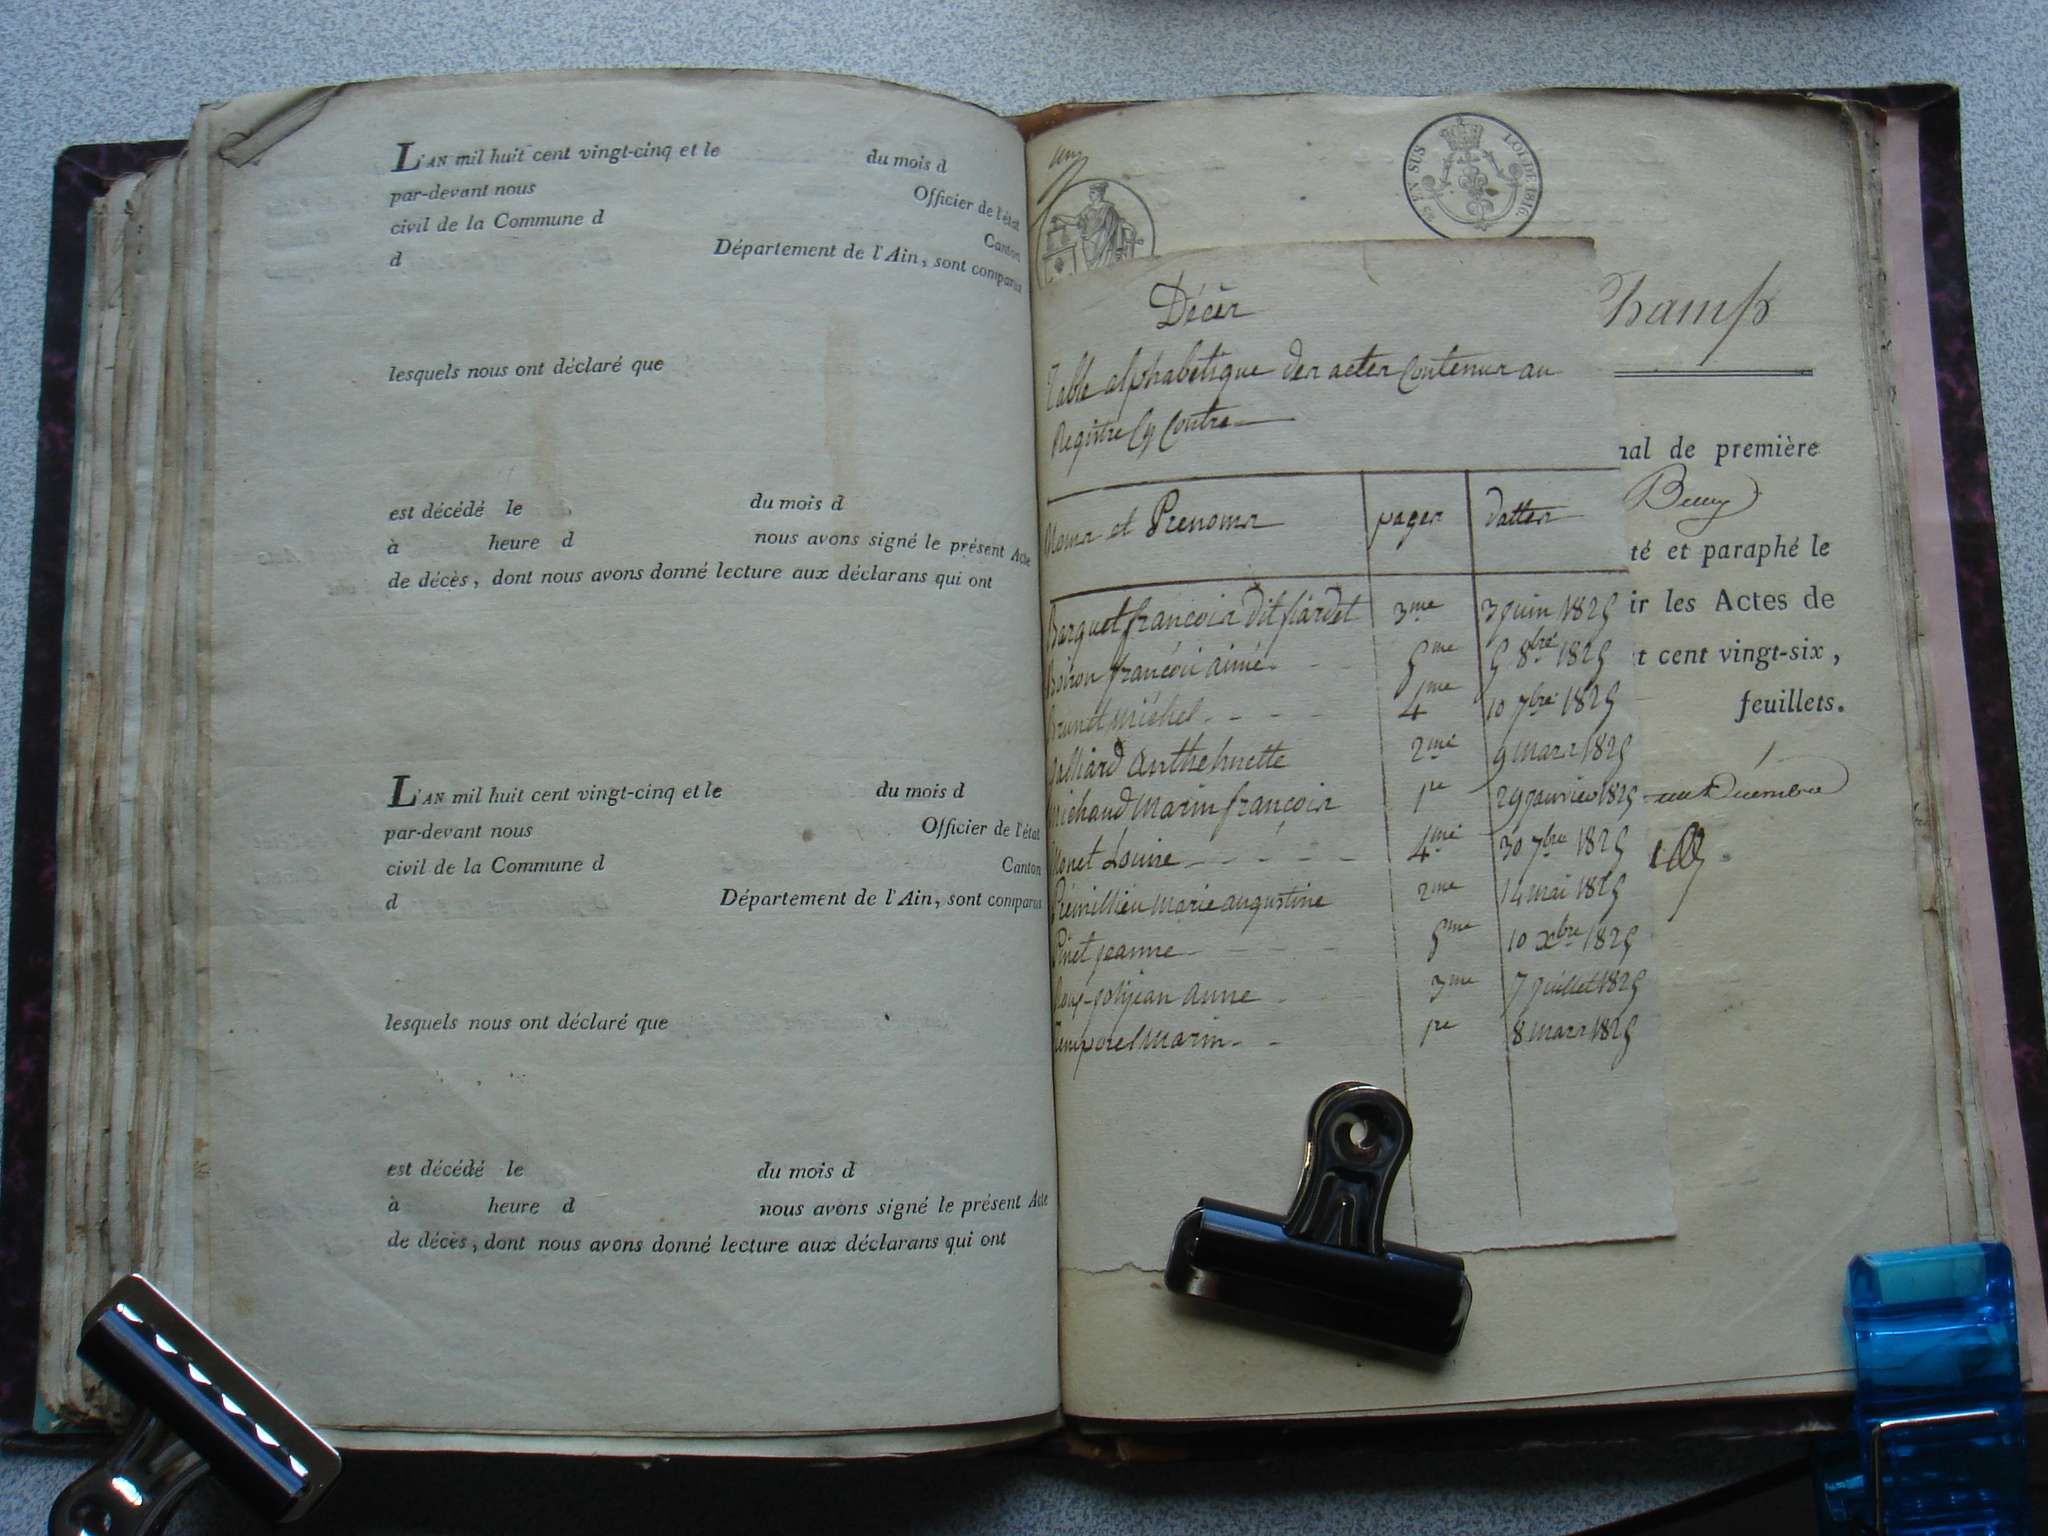 L'AN mil huit cent vingt-cinq et le du mois d
par-devant nous Officier de l'état
civil de la Commune d Canton
d Département de l'Ain, sont comparus
lesquels nous ont déclaré que
est décédé le du mois d
à heure d nous avons signé le présent Acte
de décès, dont nous avons donné lecture aux déclarans qui ont
L'AN mil huit cent vingt-cinq et le du mois d
par-devant nous Officier de l'état
civil de la Commune d Canton
d Département de l'Ain, sont comparus
lesquels nous ont déclaré que
est décédé le du mois d
à heure d nous avons signé le présent Acte
de décès, dont nous avons donné lecture aux déclarans qui ont
EN SUS LOI DE 1816
Décès
Table alphabétique des actes Contenus au
Registre Cy Contre
Noms et Prenoms pages dattes
Barquet françois dit fiardet 3me 3 juin 1825
Boiron françois aimé 5me 5 8bre 1825
Brunet michel 4me 10 7bre 1825
Anthelmette 2me 9 mars 1825
Michaud Marin françois 1re 29 janvier 1825
Monet Louise 4me 30 7bre 1825
Prémillieu marie augustine 2me 14 mai 1825
Pinet jeanne 5me 10 xbre 1825
anne 3me 7 juillet 1825
Temporel marin 1re 8 mars 1825
nal de première
té et paraphé le
ir les Actes de
t cent vingt-six,
feuillets.
Décembre